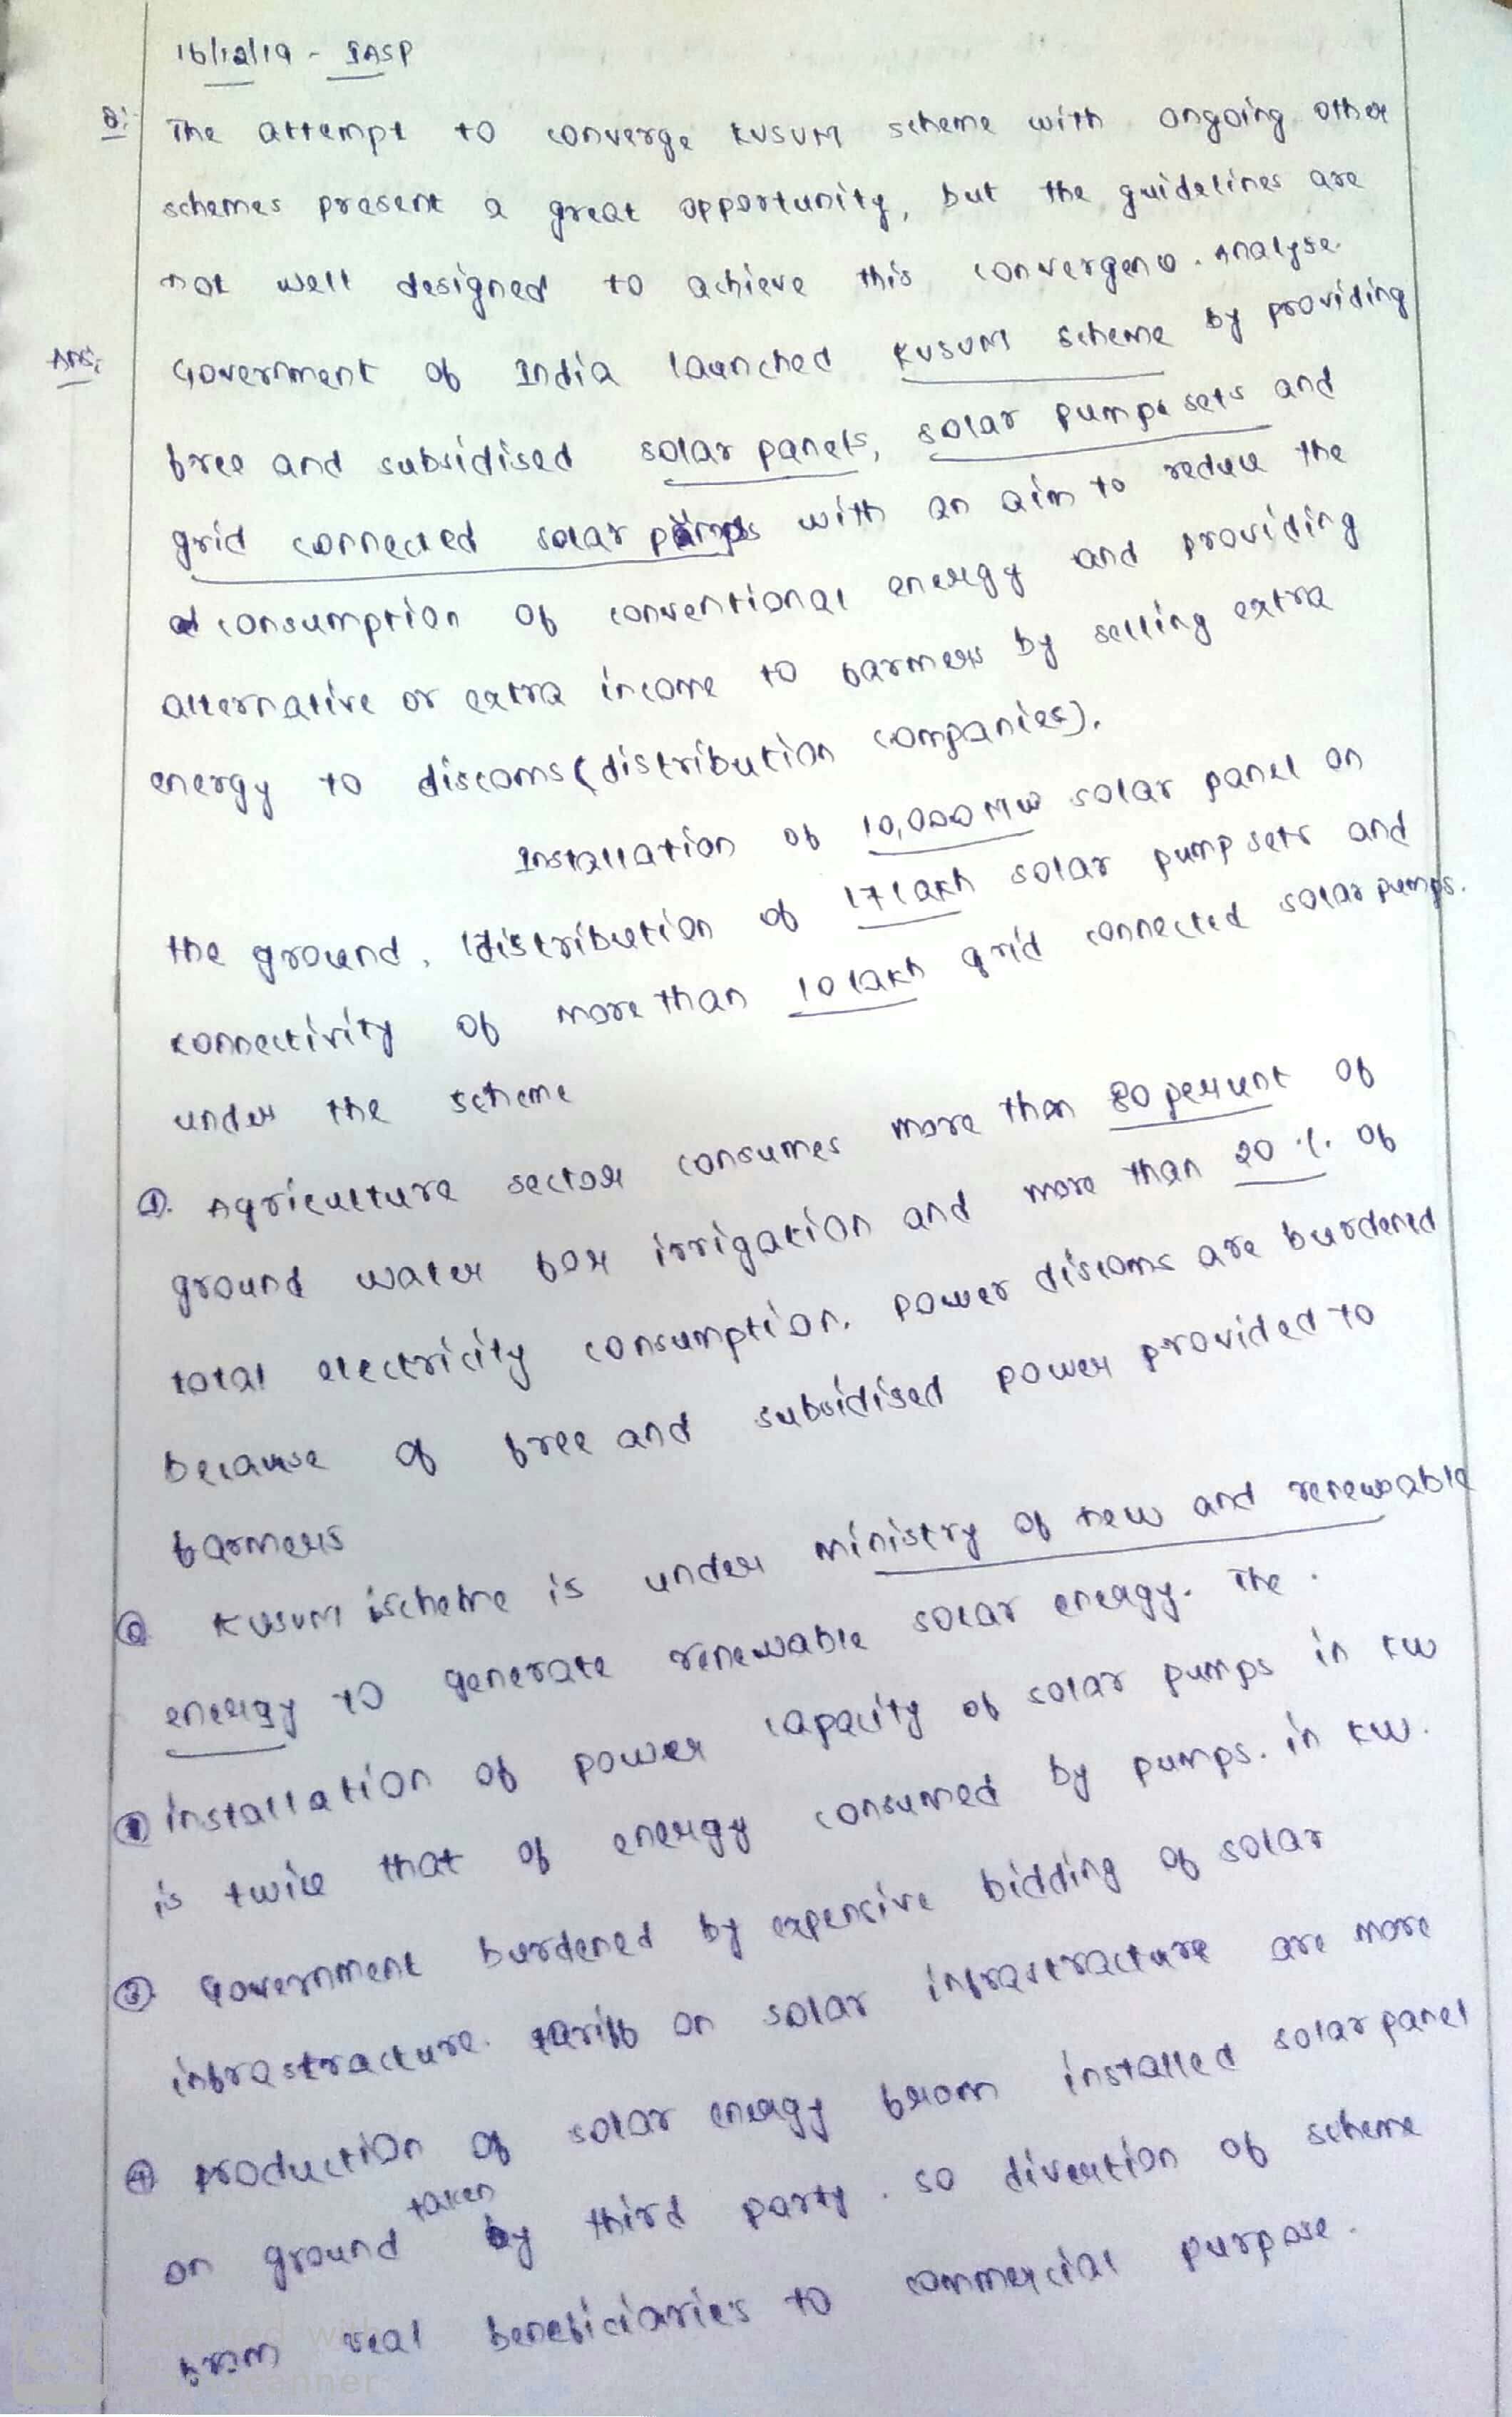 16/12/19 - IASP
Q: The attempt to converge KUSUM scheme with ongoing other
schemes present a great opportunity, but the guidelines are
not well designed to achieve this convergence. Analyse.
Ans: Government of India launched KUSUM scheme by providing
free and subsidised solar panels, solar pump sets and
grid connected solar pumps with an aim to reduce the
consumption of conventional energy and providing
alternative or extra income to farmers by selling extra
energy to discoms (distribution companies).
Installation of 10,000 MW solar panel on
the ground, distribution of 17 lakh solar pump sets and
connectivity of more than 10 lakh grid connected solar pumps.
under the scheme
①. Agriculture sector consumes more than 80 percent of
ground water for irrigation and more than 20 %. of
total electricity consumption. Power discoms are burdened
because of free and subsidised power provided to
farmers
② KUSUM scheme is under ministry of new and renewable
energy to generate renewable solar energy. The
installation of power capacity of solar pumps in KW
is twice that of energy consumed by pumps. in KW.
③ Government burdened by expensive bidding of solar
infrastructure. tariff on solar infrastructure are more
④ production of solar energy from installed solar panel
on ground taken by third party. so divertion of scheme
from real beneficiaries to commercial purpose.